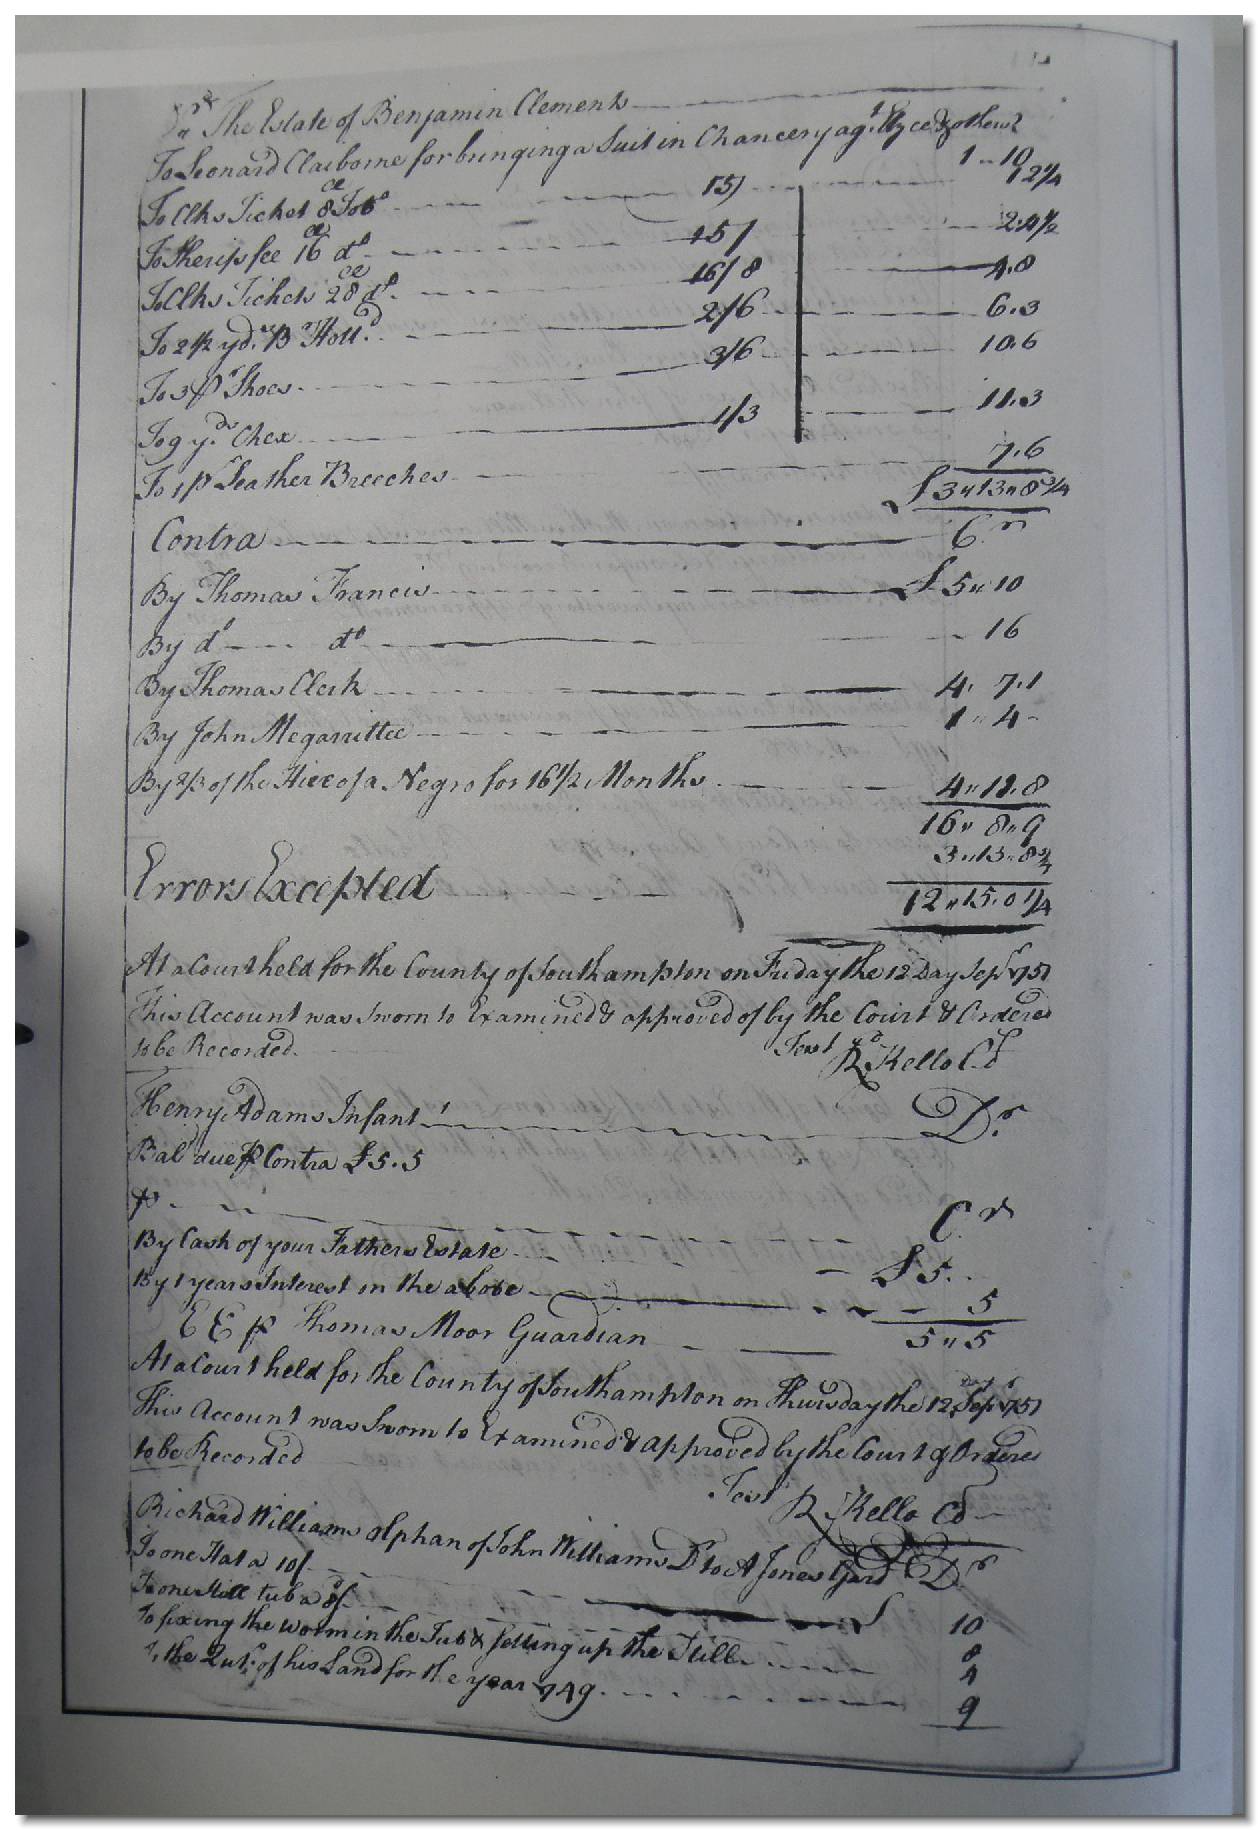 Dr The Estate of Benjamin Clements
To Leonard Claiborne for bringing a Suit in Chancery agt & others 1 " 10
To Clks Ticket 8 Tobo 15/ 1 2¼
To Sherifs fee 16 do 15/ 2.4½
To Clks Tickets 28 do 16/8 4.8
To 2½ yds Br Holld 2/6 6.3
To 3 pr Shoes 3/6 10.6
To 9 yds Chex 1/3 11.3
To 1 pr Leather Breeches 7.6
£3 " 13 " 8¾
Contra Cr
By Thomas Francis £5 " 10
By do do 16
By Thomas Clerk 4. 7.1
By John Megarrittee 1 " 4 -
By 2/3 of the Hire of a Negro for 16½ Months 4 " 11.8
16 " 8 " 9
3 " 13 " 8¾
Errors Excepted 12 " 15.0¼
At a Court held for the County of Southampton on Friday the 12 Day Sepr 1751
This Account was Sworn to Examined & approved of by the Court & Ordered
to be Recorded. Test Rd Kello C.Cl
Henry Adams Infant Dr
Bald due p Contra £5.5
p Cr
By Cash of your Fathers Estate £5..
By 1 years Interest on the above 5
E E p Thomas Moor Guardian 5 " 5
At a Court held for the County of Southampton on Thursday the 12 Day of Sepr 1751
This Account was Sworn to Examined & approved by the Court & Ordered
to be Recorded
Test R Kello Cl
Richard Williams orphan of John Williams Dr to A Jones Gard Dr
To one Hat a 10/ £ 10
To one Still tub a 8/ 8
To fixing the worm in the Tub & setting up the Still 4
To the Quts of his Land for the year 1749 9